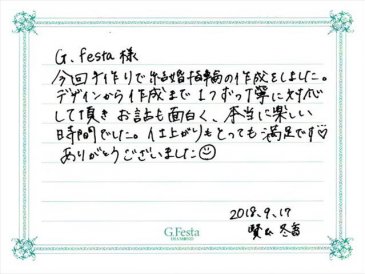 G.festa 様
今回手作りで結婚指輪の作成をしました。
デザインから作成まで1つずつ丁寧に対応
して頂き お話も面白く、本当に楽しい
時間でした。仕上がりもとっても満足です♡
ありがとうございました☺
2018.9.17
G.Festa
DIAMOND